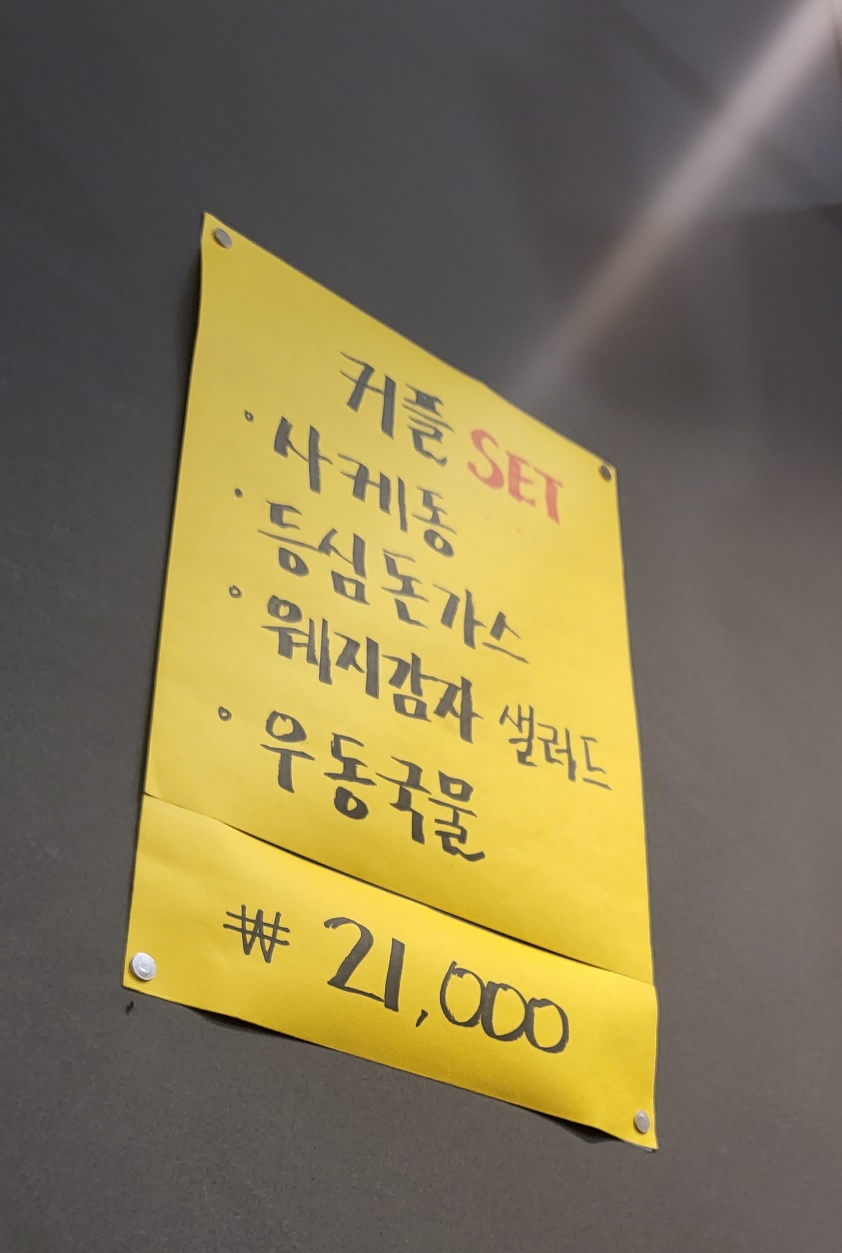 커플 SET
· 사케동
· 등심돈가스
· 웨지감자 샐러드
· 우동국물
₩ 21,000